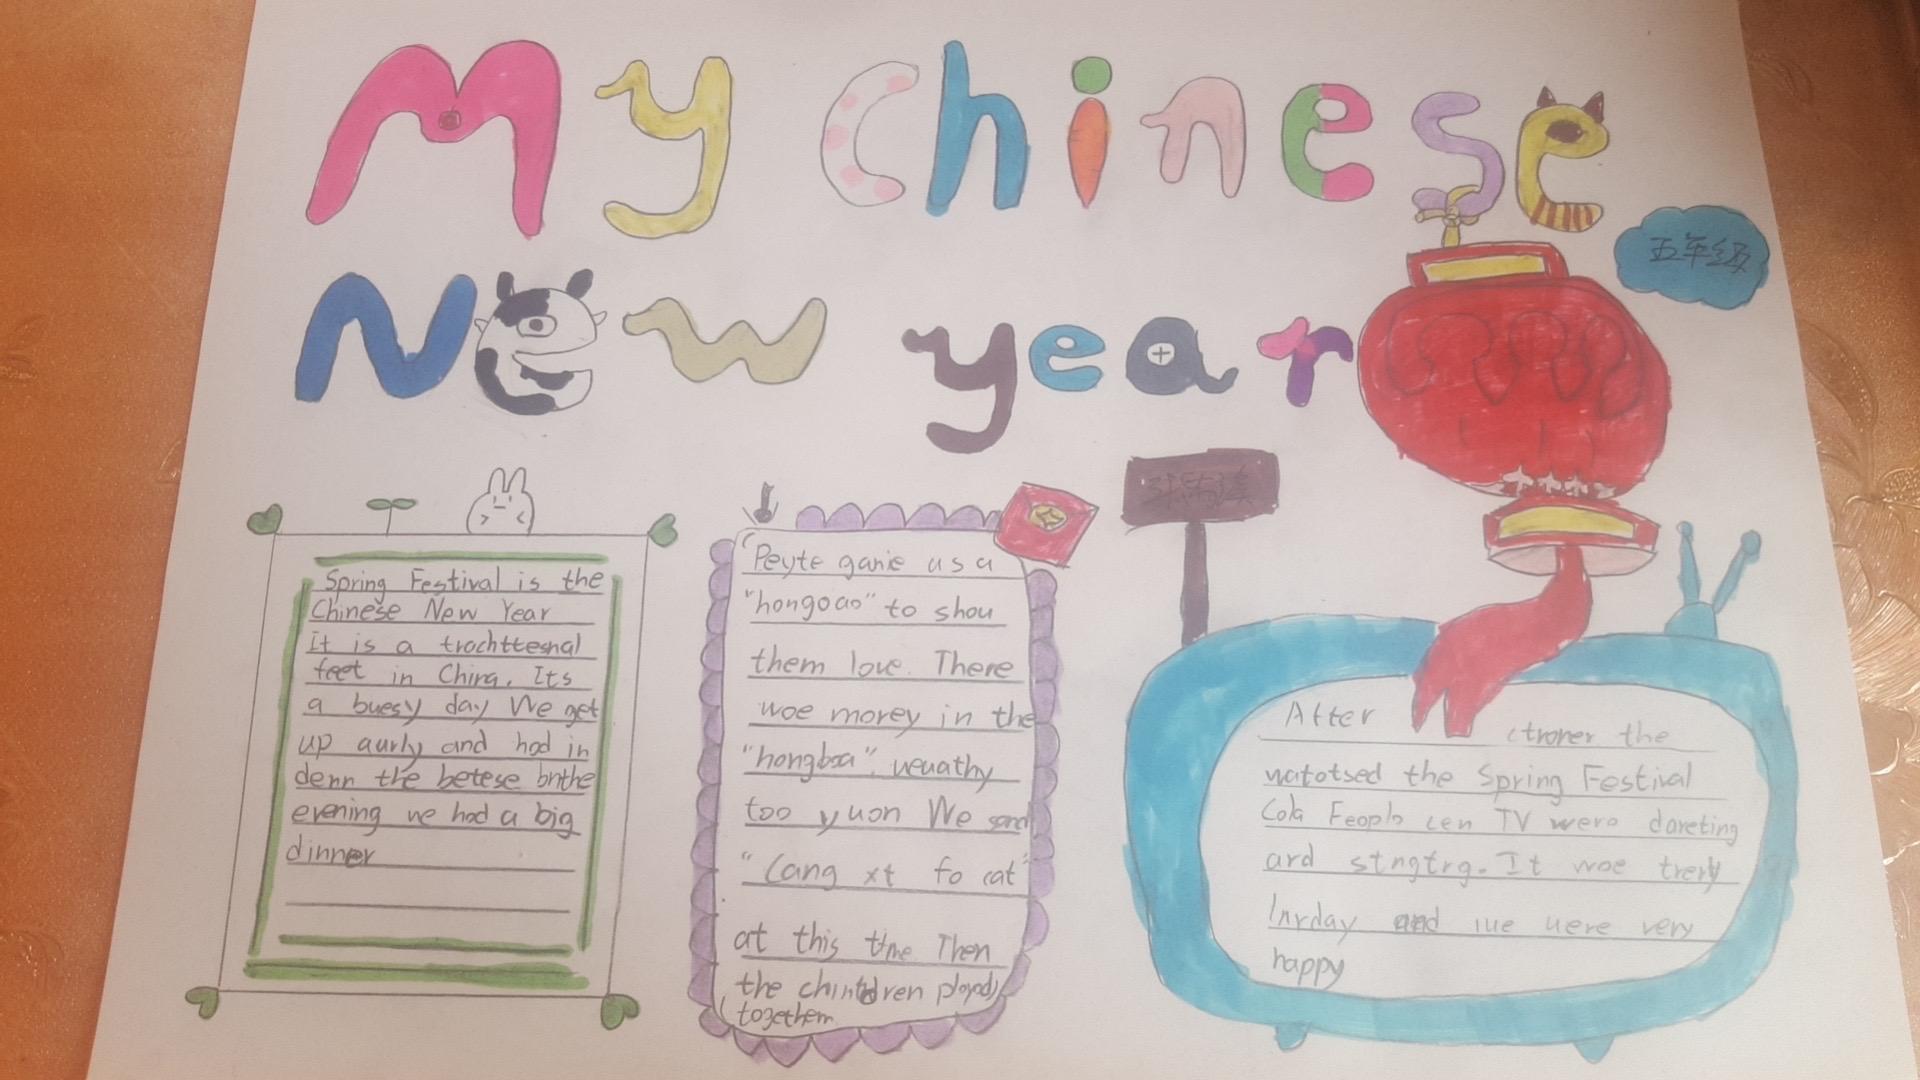 My chinese
New year
五年级
Spring Festival is the
Chinese New Year
It is a trochttesnal
feet in China. Its
a buesy day We get
up aurly and hod in
denn the betese bnthe
evening we had a big
dinner
Peyte ganie us a
"hongoao" to shou
them love. There
woe morey in the
"hongboa". ueuathy
too yuon We send
"Cang xt fo cat"
at this tIme. Then
the children ployody
togethem
After ctroner the
watotsed the Spring Festival
Cola Feoplo cen TV wero dareting
ard stngtrg. It woe trery
lnrday and iue uere very
happy